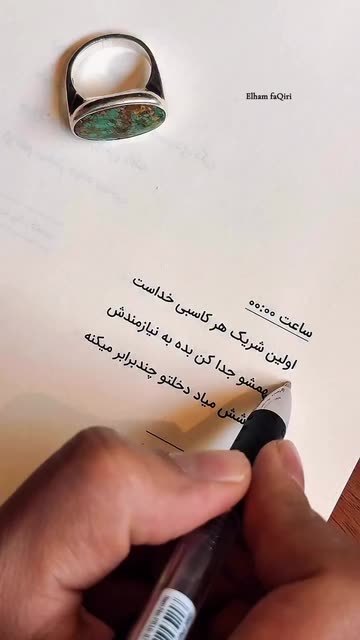 Elham faQiri
ساعت ۰۰:۰۰
اولین شریک هر کاسبی خداست
همشو جدا کن بده به نیازمندش
شش میاد دخلتو چندبرابر میکنه